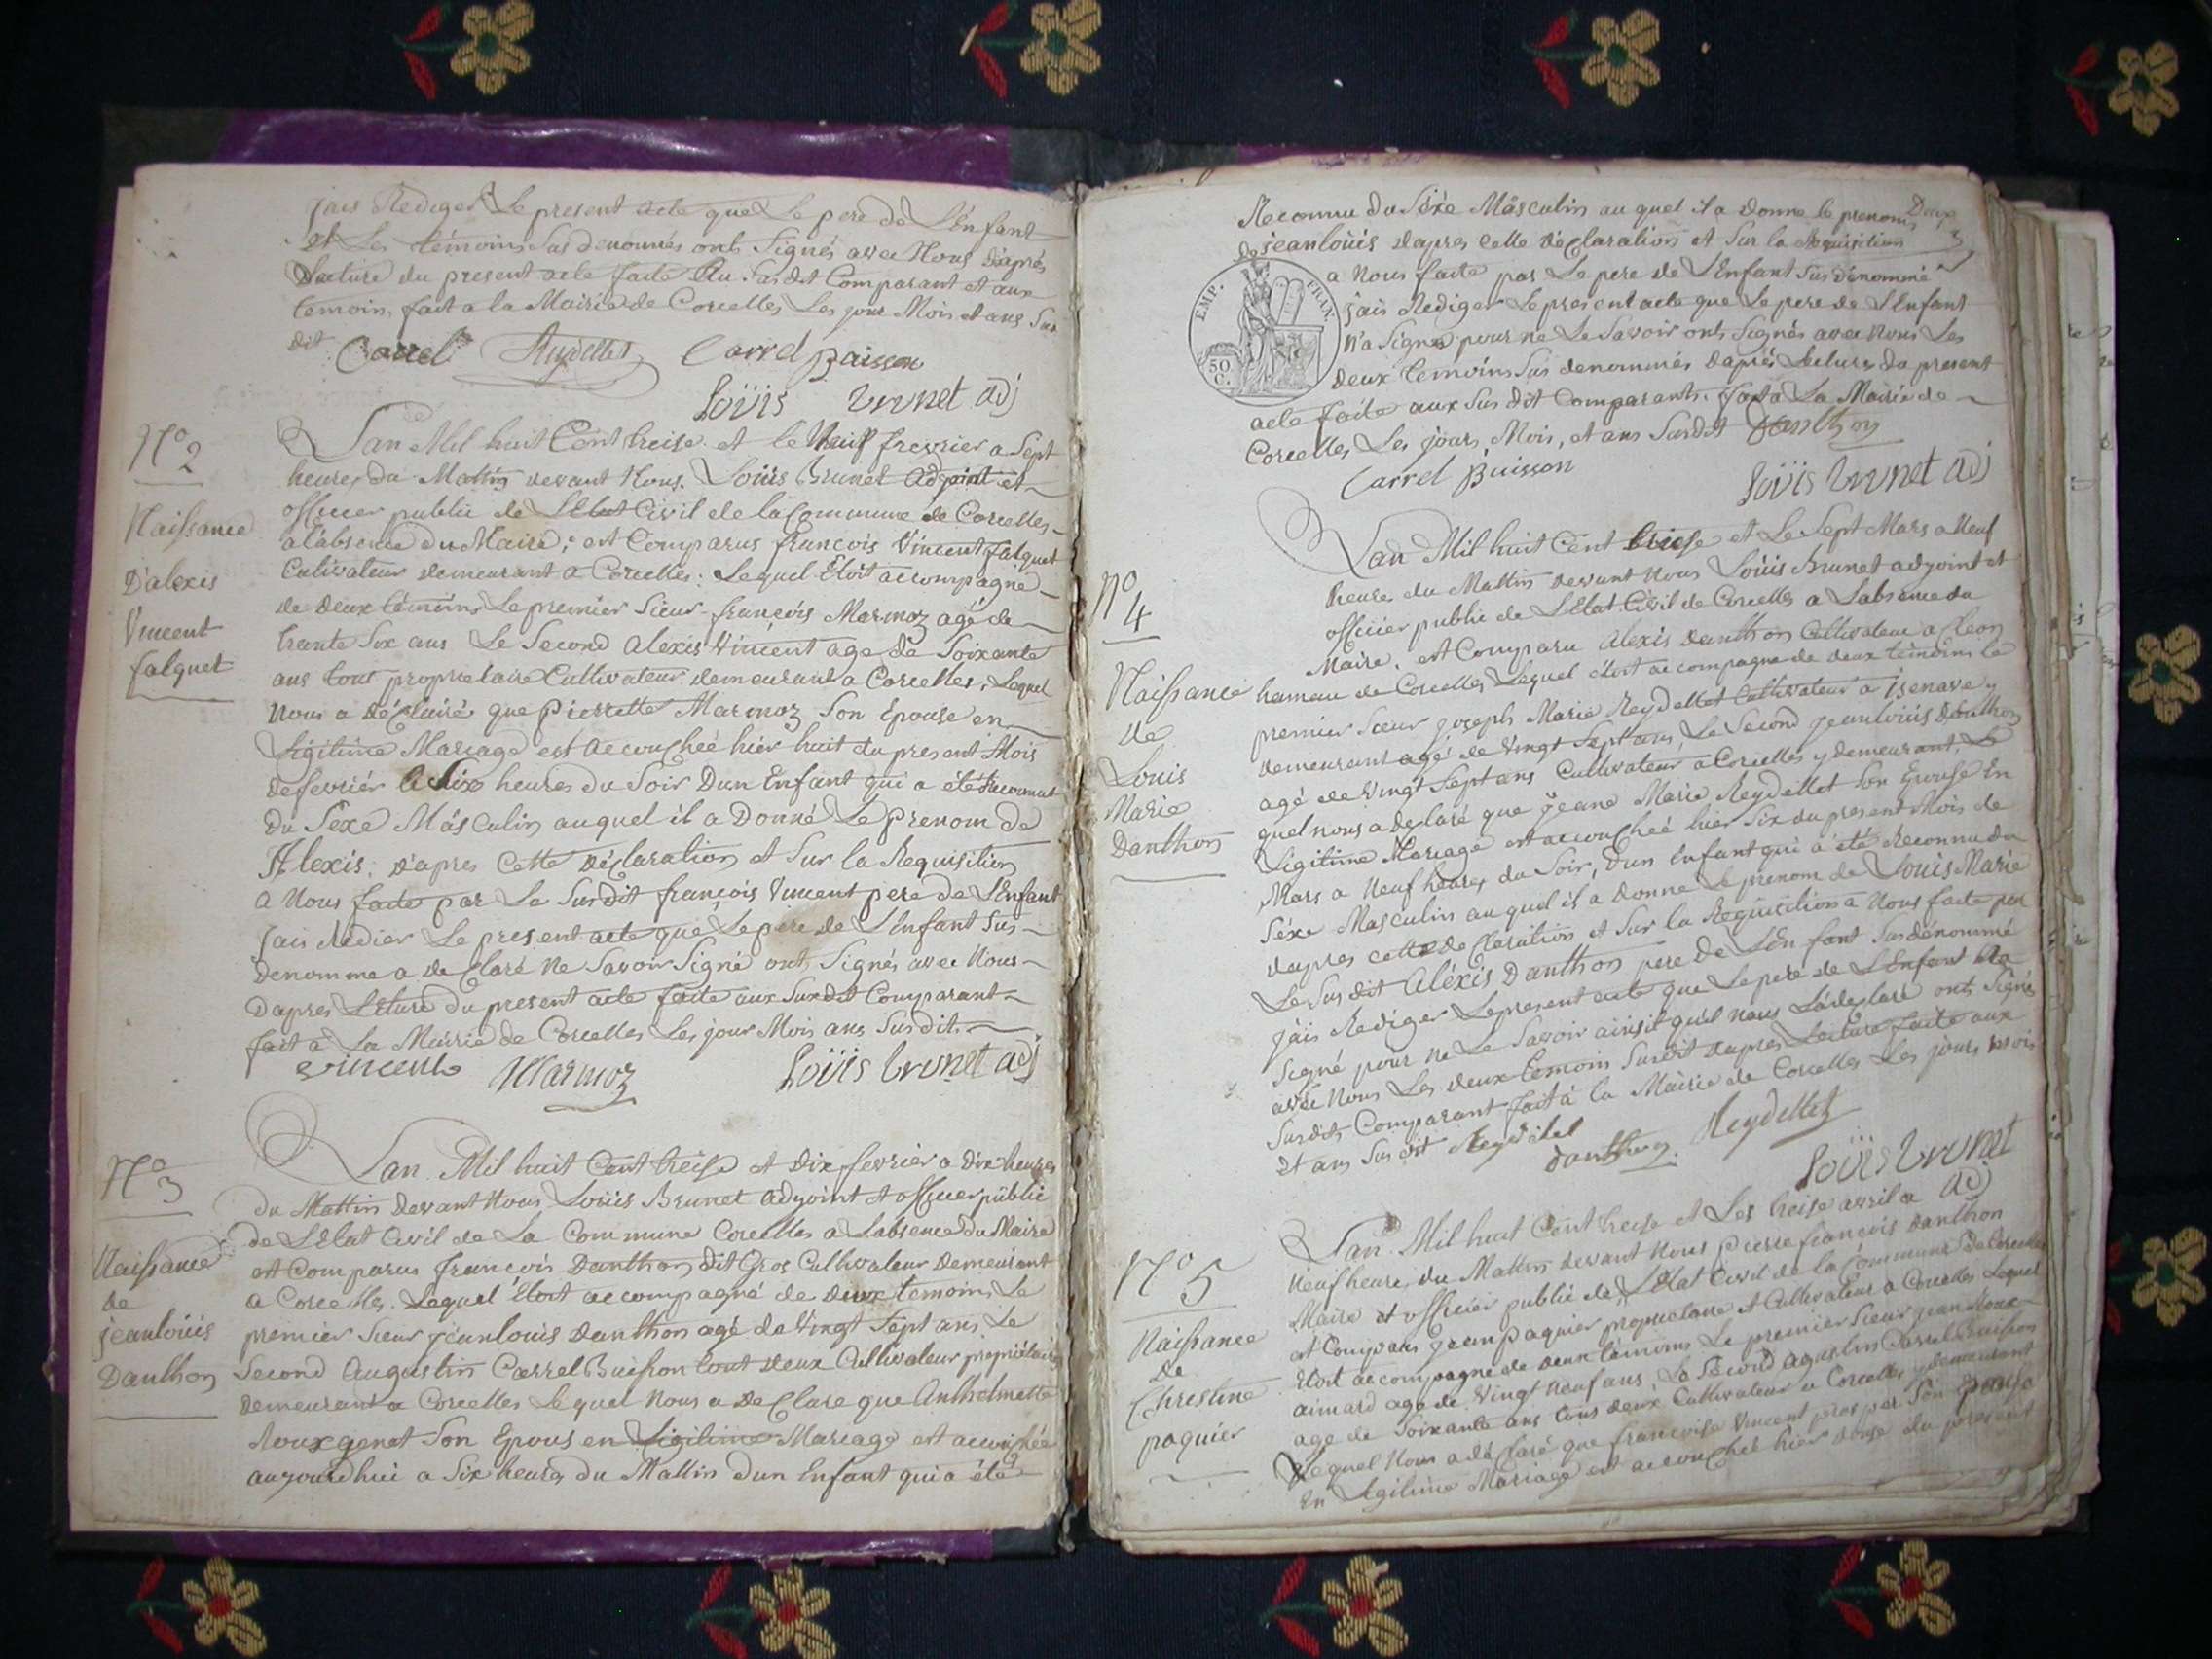 jais Rediger Le present acte que Le pere de L'Enfant
et Les témoins Sus denommés onts Signés avec Nous d'aprés
Lecture du present acte faite Au Sus dit Comparant et aux
temoins, fait a la Mairie de Corcelles Les jour Mois et ans Sus
dit
Carrel Reydellet Carrel Buisson
Loüis brunet adj
N° 2
Naissance
D'alexis
Vincent
falquet
Lan Mil huit Cent treise et le Neuf fevrier a Sept
heures du Mattin devant Nous. Loüis Brunet Adjoint et
officier public de LEtat Civil de la Commune de Corcelles
a l'absence du Maire; est Comparus françois Vincent falquet
Cultivateur demeurant a Corcelles: Lequel Etoit accompagné
de deux témoins Le premier Sieur françois Marmoz agé de
trante Six ans Le Second Alexis Vincent age de Soixante
ans tous proprietaire Cultivateur demeurant a Corcelles, Lequel
Nous a déclairé que Pierrette Marmoz Son Epouse en
Légitime Mariage est accouchéé hier huit du present Mois
de fevriér a Six heures du Soir Dun Enfant qui a été Reconnut
Du Sexe Másculin auquel il a Donné Le Prenom de
Alexis; d'apres Cette Déclaration et Sur la Requisition
a Nous faite par Le Susdit françois Vincent pere de L'Enfant
jais Redier Le present acte que Le pere de L'Enfant Sus
Denomme a declaré Ne Savoir Signé onts Signés avec Nous
Dapres Leture du present acte faite aux Susdit Comparant
fait a La Mairrie de Corcelles Les jour Mois ans Susdit.
Vincent Marmoz Loüis brunet adj
N° 3
Naissance
de
jeanloüis
Danthon
Lan Mil huit Cent treise et dix fevrier a dix heures
du Mattin devant Nous Loüis Brunet adjoint et officier públic
de LEtat Civil de La Commune Corcelles a Labsence du Maire
est Comparus françois Danthon dit Gros Cultivateur Demeurant
a Corcelles. Lequel Etoit accompagné de deux temoins Le
premier Sieur jeanlouis Danthon agé de Vingt Sept ans Le
Second Augustin Carrel Buisson tout deux Cultivateur propriétaire
demeurant a Corcelles Lequel Nous a declare que Anthelmette
Rouxgenet Son Epous en Legitime Mariage est accouchée
aujourdhui a Six heures du Mattin dun Enfant qui a été
Deux
Reconnu du Séxe Másculin au quel il a donne le prenom
de jeanloüis dapres Cette déclaration et Sur la Requisition
a Nous faite par Le pere de L'Enfant Sus dénommé
jais Rediger Le present acte que Le pere de L'Enfant
n'a Signé pour ne Le Savoir onts Signés avec Nous Les
Deux temoins Sus denommés Daprés Lecture du present
acte faite aux Sus dit Comparants. fait a La Mairie de
Corcelles Les jours, Mois, et ans Susdit Danthon
EMP. FRAN.
50 C.
Carrel Buisson Loüis brunet adj
N° 4
Naissance
de
Louis
Marie
Danthon
Lan Mil huit Cent treise et Le Sept Mars a Neuf
heures du Mattin devant Nous Loüis Brunet adjoint et
officier public de LEtat Civil de Corcelles a Labsence du
Maire. est Comparu Alexis Danthon Cultivateur a Cleon
hameau de Corcelles Lequel étoit accompagne de deux témoins Le
premier Sieur joseph Marie Reydellet Cultivateur a isenave y
demeurant agé de Vingt Sept ans, Le Second jeanloüis Danthon
agé de Vingt Sept ans Cultivateur a Corcelles y demeurant, Le
quel nous a declaré que jeane Marie Reydellet Son Epouse En
Ligitime Mariage est accouchéé hier Six du present Mois de
Mars a Neuf heures du Soir, Dun Enfant qui a été Reconnu du
Séxe Masculin au quel il a donne Le prenom de Louis Marie
dapres cette declaration et Sur la Requisition a Nous faite par
Le Sus dit Aléxis Danthon pere de LEnfant Sus dénommé
jais Rediger Le present acte que Le pere de L'Enfant Na
Signé pour ne Le Savoir ainsit qu'il nous La declaré onts Signés
avéc Nous Les deux temoins Susdit Dapres Lecture faite aux
Susdits Comparant fait à la Mairie de Corcelles Les jours mois
Et ans Sus dit Reydellet Danthon Reydellet
Loüis brunet
adj
N° 5
Naissance
de
Chrestine
paquier
Lan Mil huit Cent treise et Les treise avril a
Neuf heures du Mattin devant Nous Pierre françois Danthon
Maire et officier public de L'Etat Civil de la Commune de Corcelles
est Comparus jean paquier proprietaire et Cultivateur a Corcelles Lequel
Etoit accompagné de deux témoins Le premier Sieur jean Roux
aimard age de Vingt Neuf ans, Le Second agustin Carrel Buisson
age de Soixante ans tous deux Cultivateur a Corcelles y demeurant
Lequel Nous a déclaré que francoise Vincent Son Epouse
En Légitime Mariage est accouchée hier douse du present